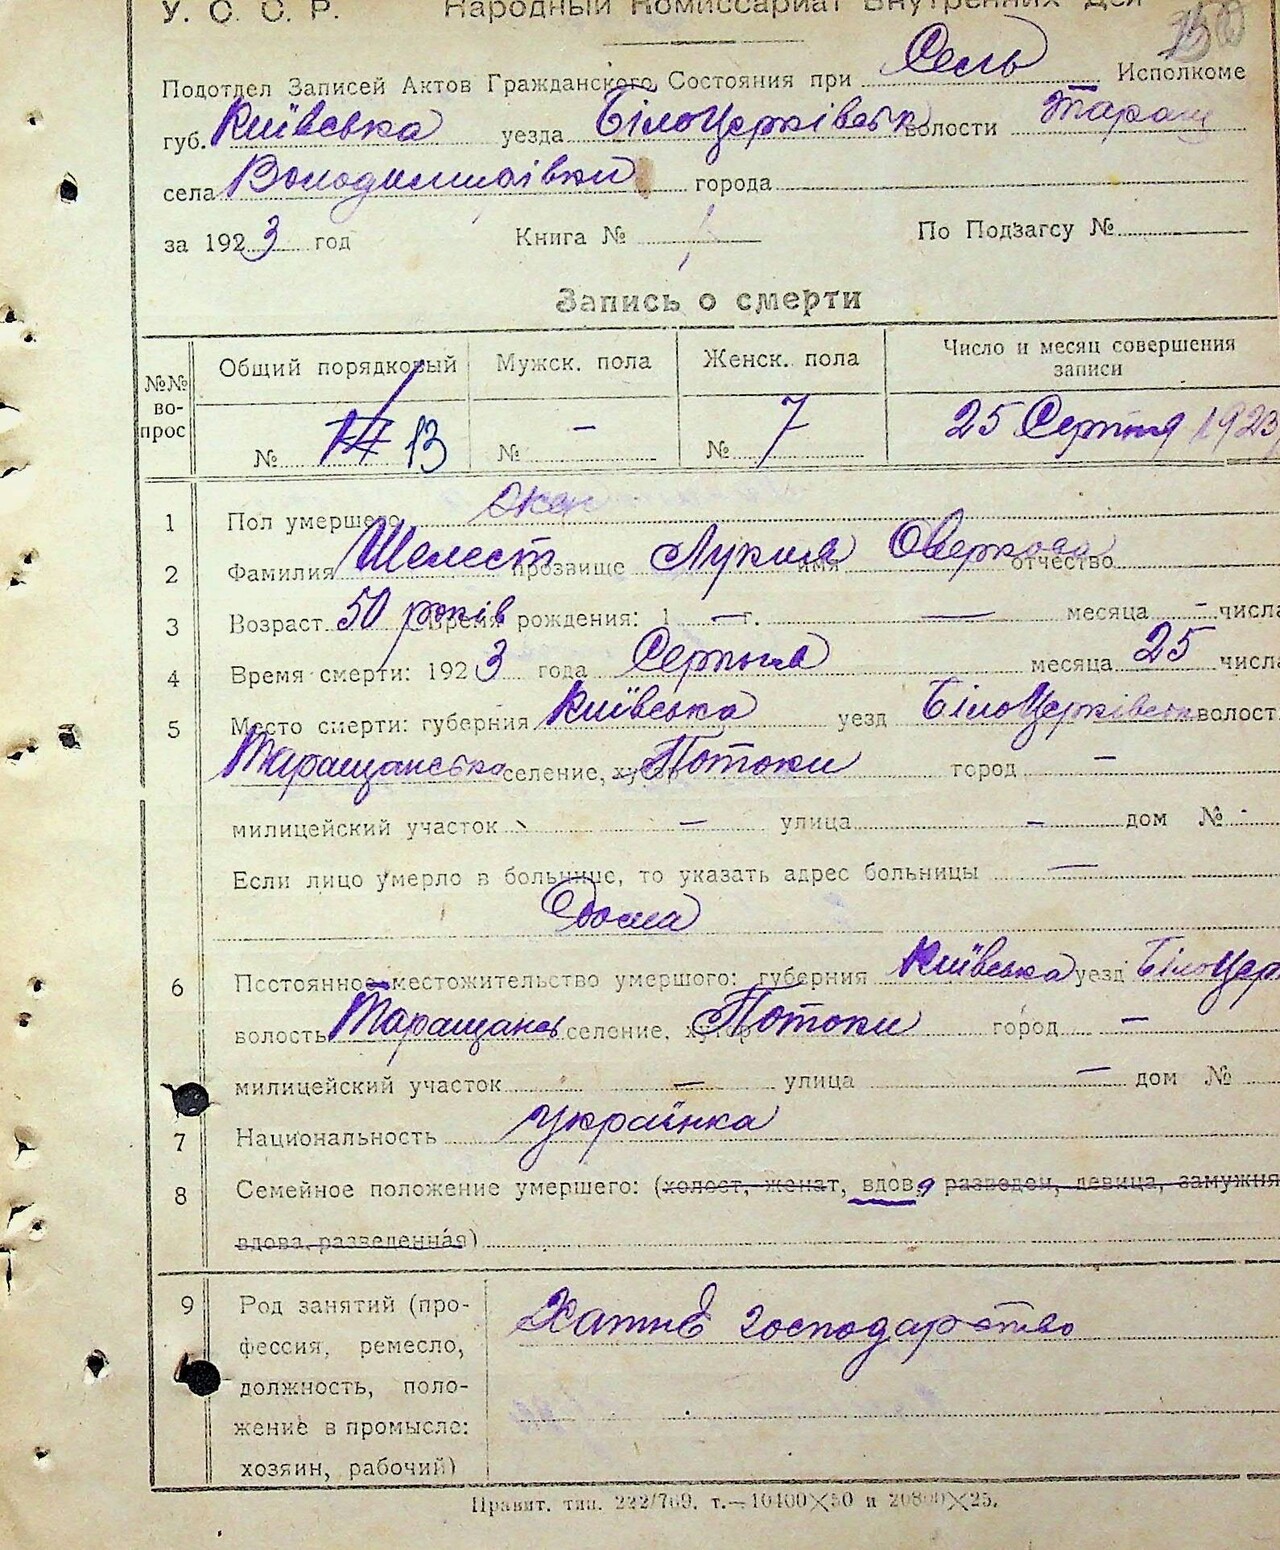 У. С. С. Р. Народный Комиссариат Внутренних Дел
150
Подотдел Записей Актов Гражданского Состояния при Сель Исполкоме
губ. Київська уезда БілоЦерківськ волости Таращ
села Володимирівки города
за 1923 год Книга № По Подзагсу №
Запись о смерти
№№ вопрос Общий порядковый Мужск. пола Женск. пола Число и месяц совершения записи
№ 14 13 № — № 7 25 Серпня 1923
1 Пол умершего жен
2 Фамилия Шелест прозвище Лукия имя Оверкова отчество
3 Возраст 50 років Время рождения: 1 — г. — месяца - числа
4 Время смерти: 1923 года Серпня месяца 25 числа
5 Место смерти: губерния Київська уезд БілоЦерківськ волост
Таращанська селение, хутор Потоки город —
милицейский участок — улица — дом № -
Если лицо умерло в больнице, то указать адрес больницы —
Дома
6 Постоянное местожительство умершого: губерния Київська уезд БілоЦер
волость Таращансь селение, хутор Потоки город —
милицейский участок — улица — дом №
7 Национальность українка
8 Семейное положение умершего: (холост, женат, вдова разведен, девица, замужня
вдова, разведенная)
9 Род занятий (про- Хатнє господарство
фессия, ремесло,
должность, поло-
жение в промысле:
хозяин, рабочий)
Правит. тип. 222/769. т.—10400×50 и 20800×25.